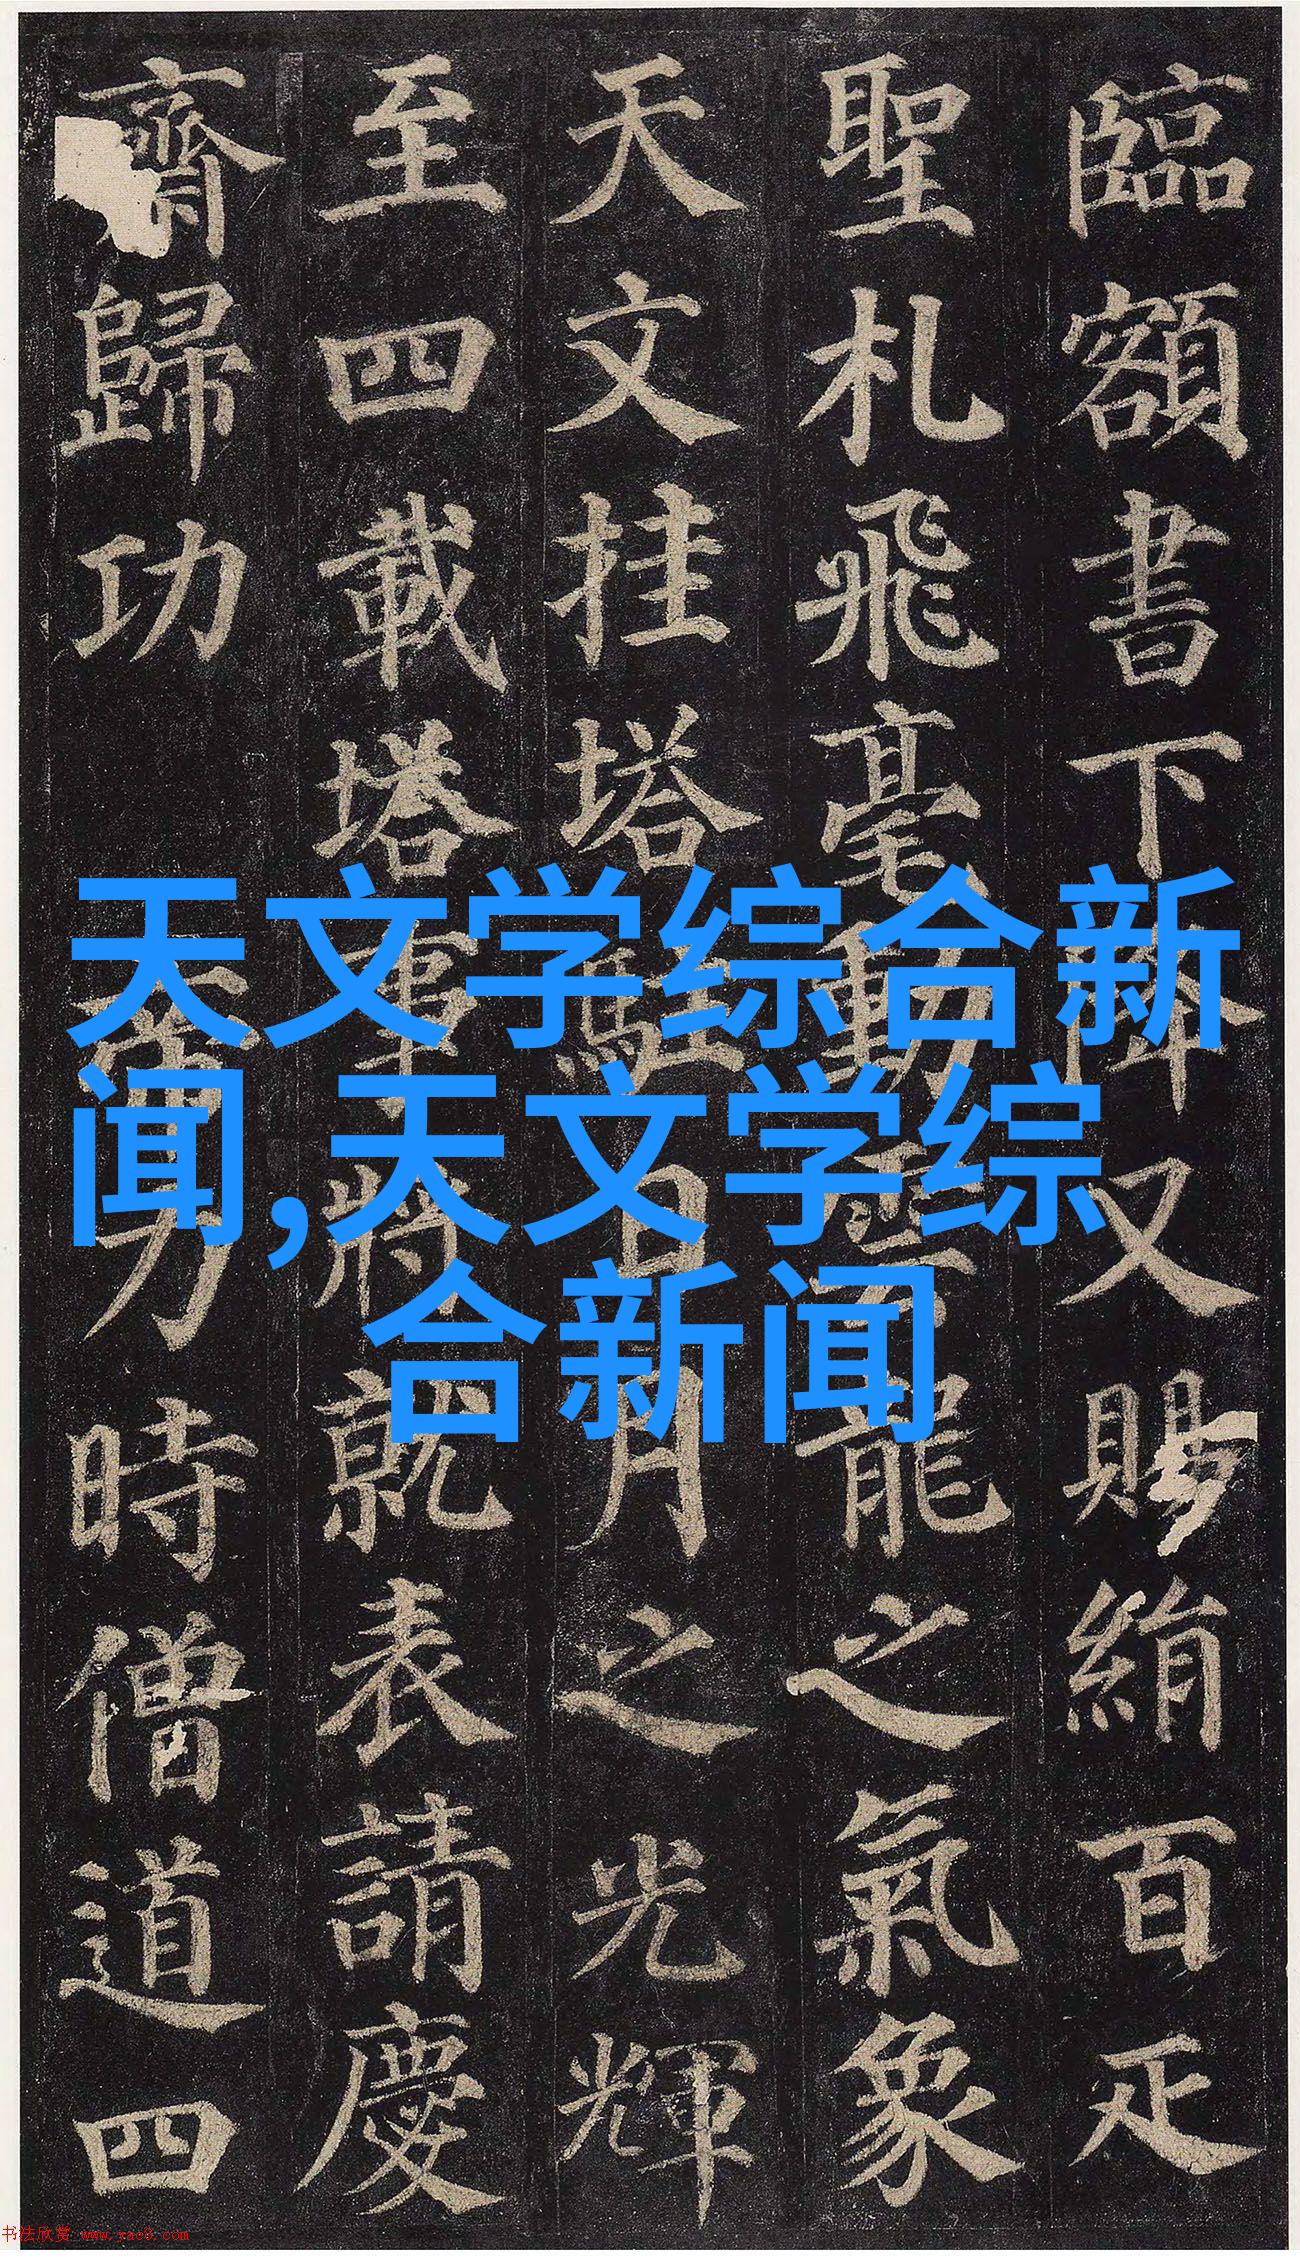 臨額書下降又賜絹百疋
聖札飛毫動雲龍之氣象
天文挂塔駐日月之光輝
至四載塔事將就表請慶
齋歸功 帝力時僧道四
天文学综合新
闻,天文学综
合新闻
书法欣赏 www.yac8.com